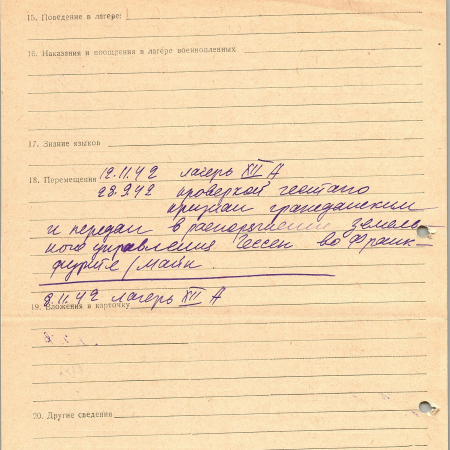 15. Поведение в лагере:
16. Наказания и поощрения в лагере военнопленных
17. Знание языков
18. Перемещения 12.11.42 лагерь XII А
23.9.42 проверкой гестапо
признан гражданским
и передан в распоряжение земель-
ного управления Гессен во Франк-
фурте/Майн.
8.11.42 лагерь XII А
19. Вложения в карточку
20. Другие сведения